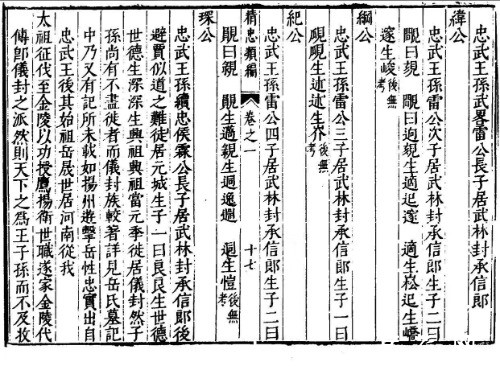 緯公
忠武王孫武畧雷公長子居武林封承信郎
忠武王孫雷公次子居武林封承信郎生子二曰
曰親 曰 親生適 適生崧 生嶠
生峻後無考
綱公
忠武王孫雷公三子居武林封承信郎生子一曰
生 生界後無考
紀公
忠武王孫雷公四子居武林封承信郎生子二曰
精忠類編 卷之一 十七
曰親 生適親生 生愷後無考
琛公
忠武王孫續忠侯霖公長子居武林封承信郎後
避賈似道之難徙居元城生子一曰良良生世德
世德生深深生興祖興祖當元季徙居儀封然子
孫尚有不盡徙者而儀封族較著詳見岳氏墓記
中乃又有記所未載如揚州遊擊岳性忠實出自
忠武王後其始祖岳晟世居河南從我
太祖征伐至金陵以功授鷹揚衛世職遂家金陵代
傳卽儀封之派然則天下之爲王子孫而不及收